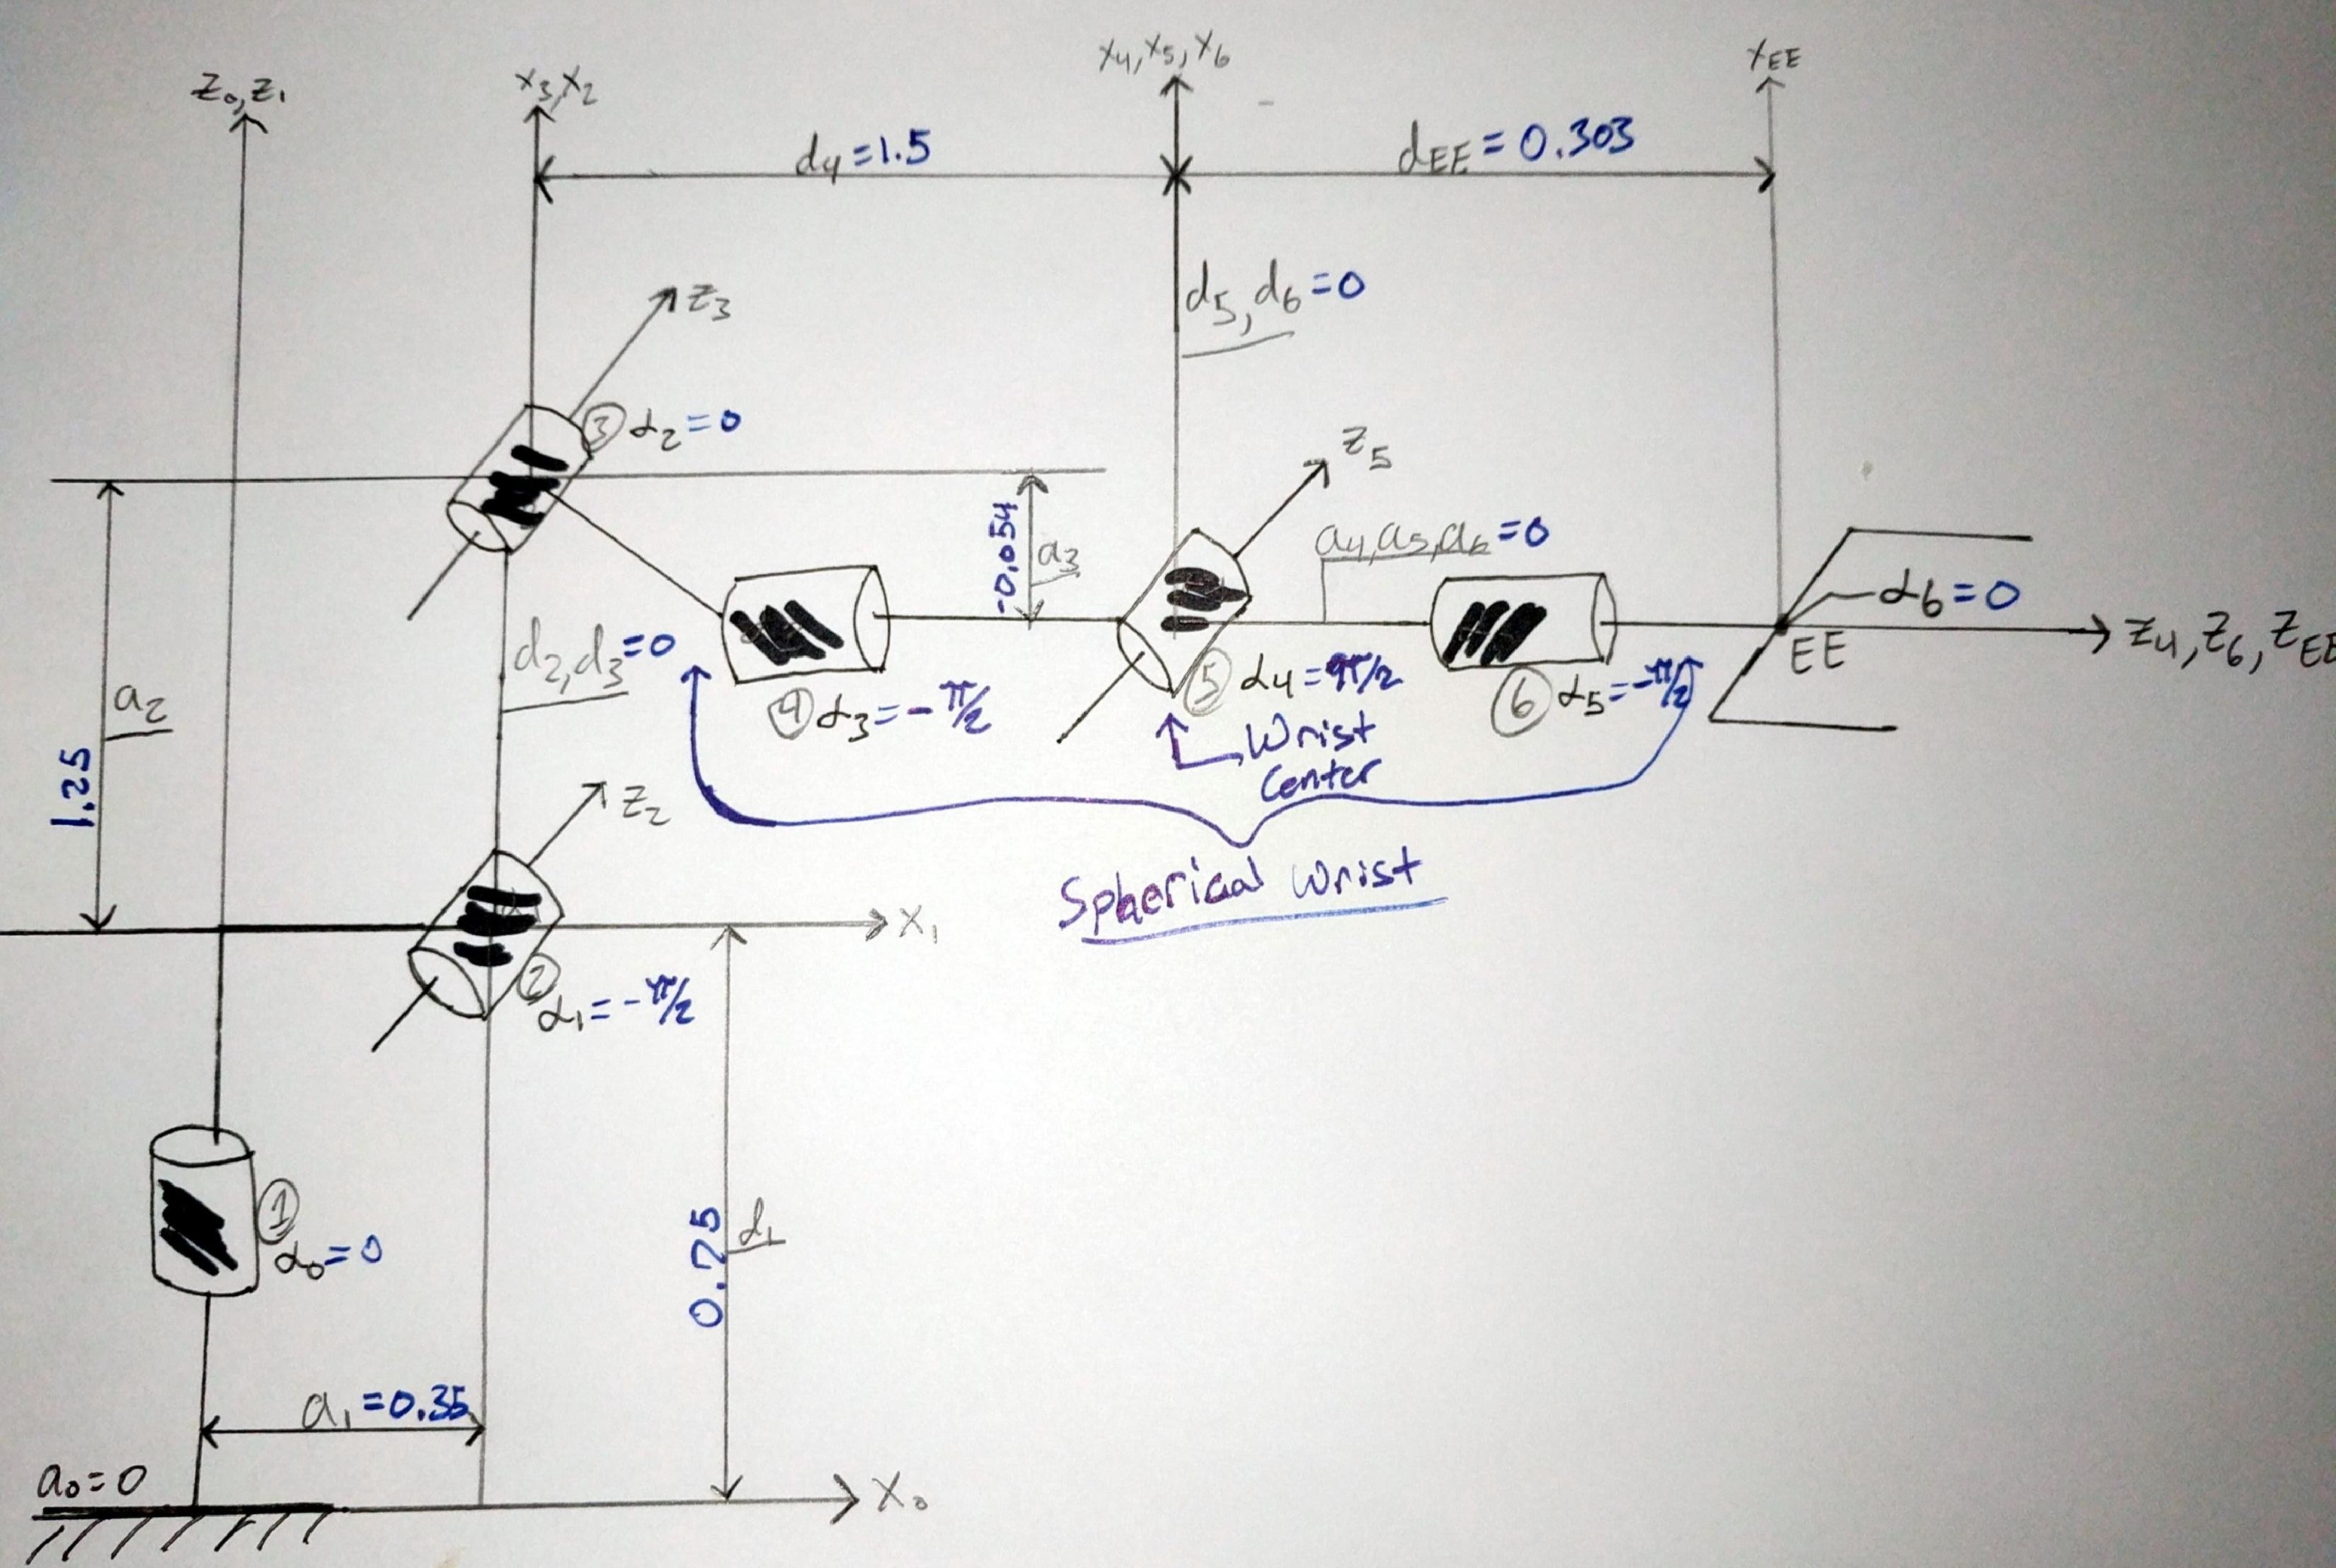 Z₀,Z₁
X₃,X₂
X₄,X₅,X₆
X_EE
d₄=1.5
d_EE=0.303
Z₃
d₅,d₆=0
③ α₂=0
Z₅
-0.054
a₃
a₄,a₅,a₆=0
α₆=0
Z₄,Z₆,Z_EE
EE
d₂,d₃=0
④ α₃=-π/2
⑤ α₄=π/2
⑥ α₅=-π/2
a₂
1.25
Wrist
Center
Z₂
Spherical Wrist
X₁
② α₁=-π/2
① α₀=0
0.75
d₁
a₁=0.35
a₀=0
X₀